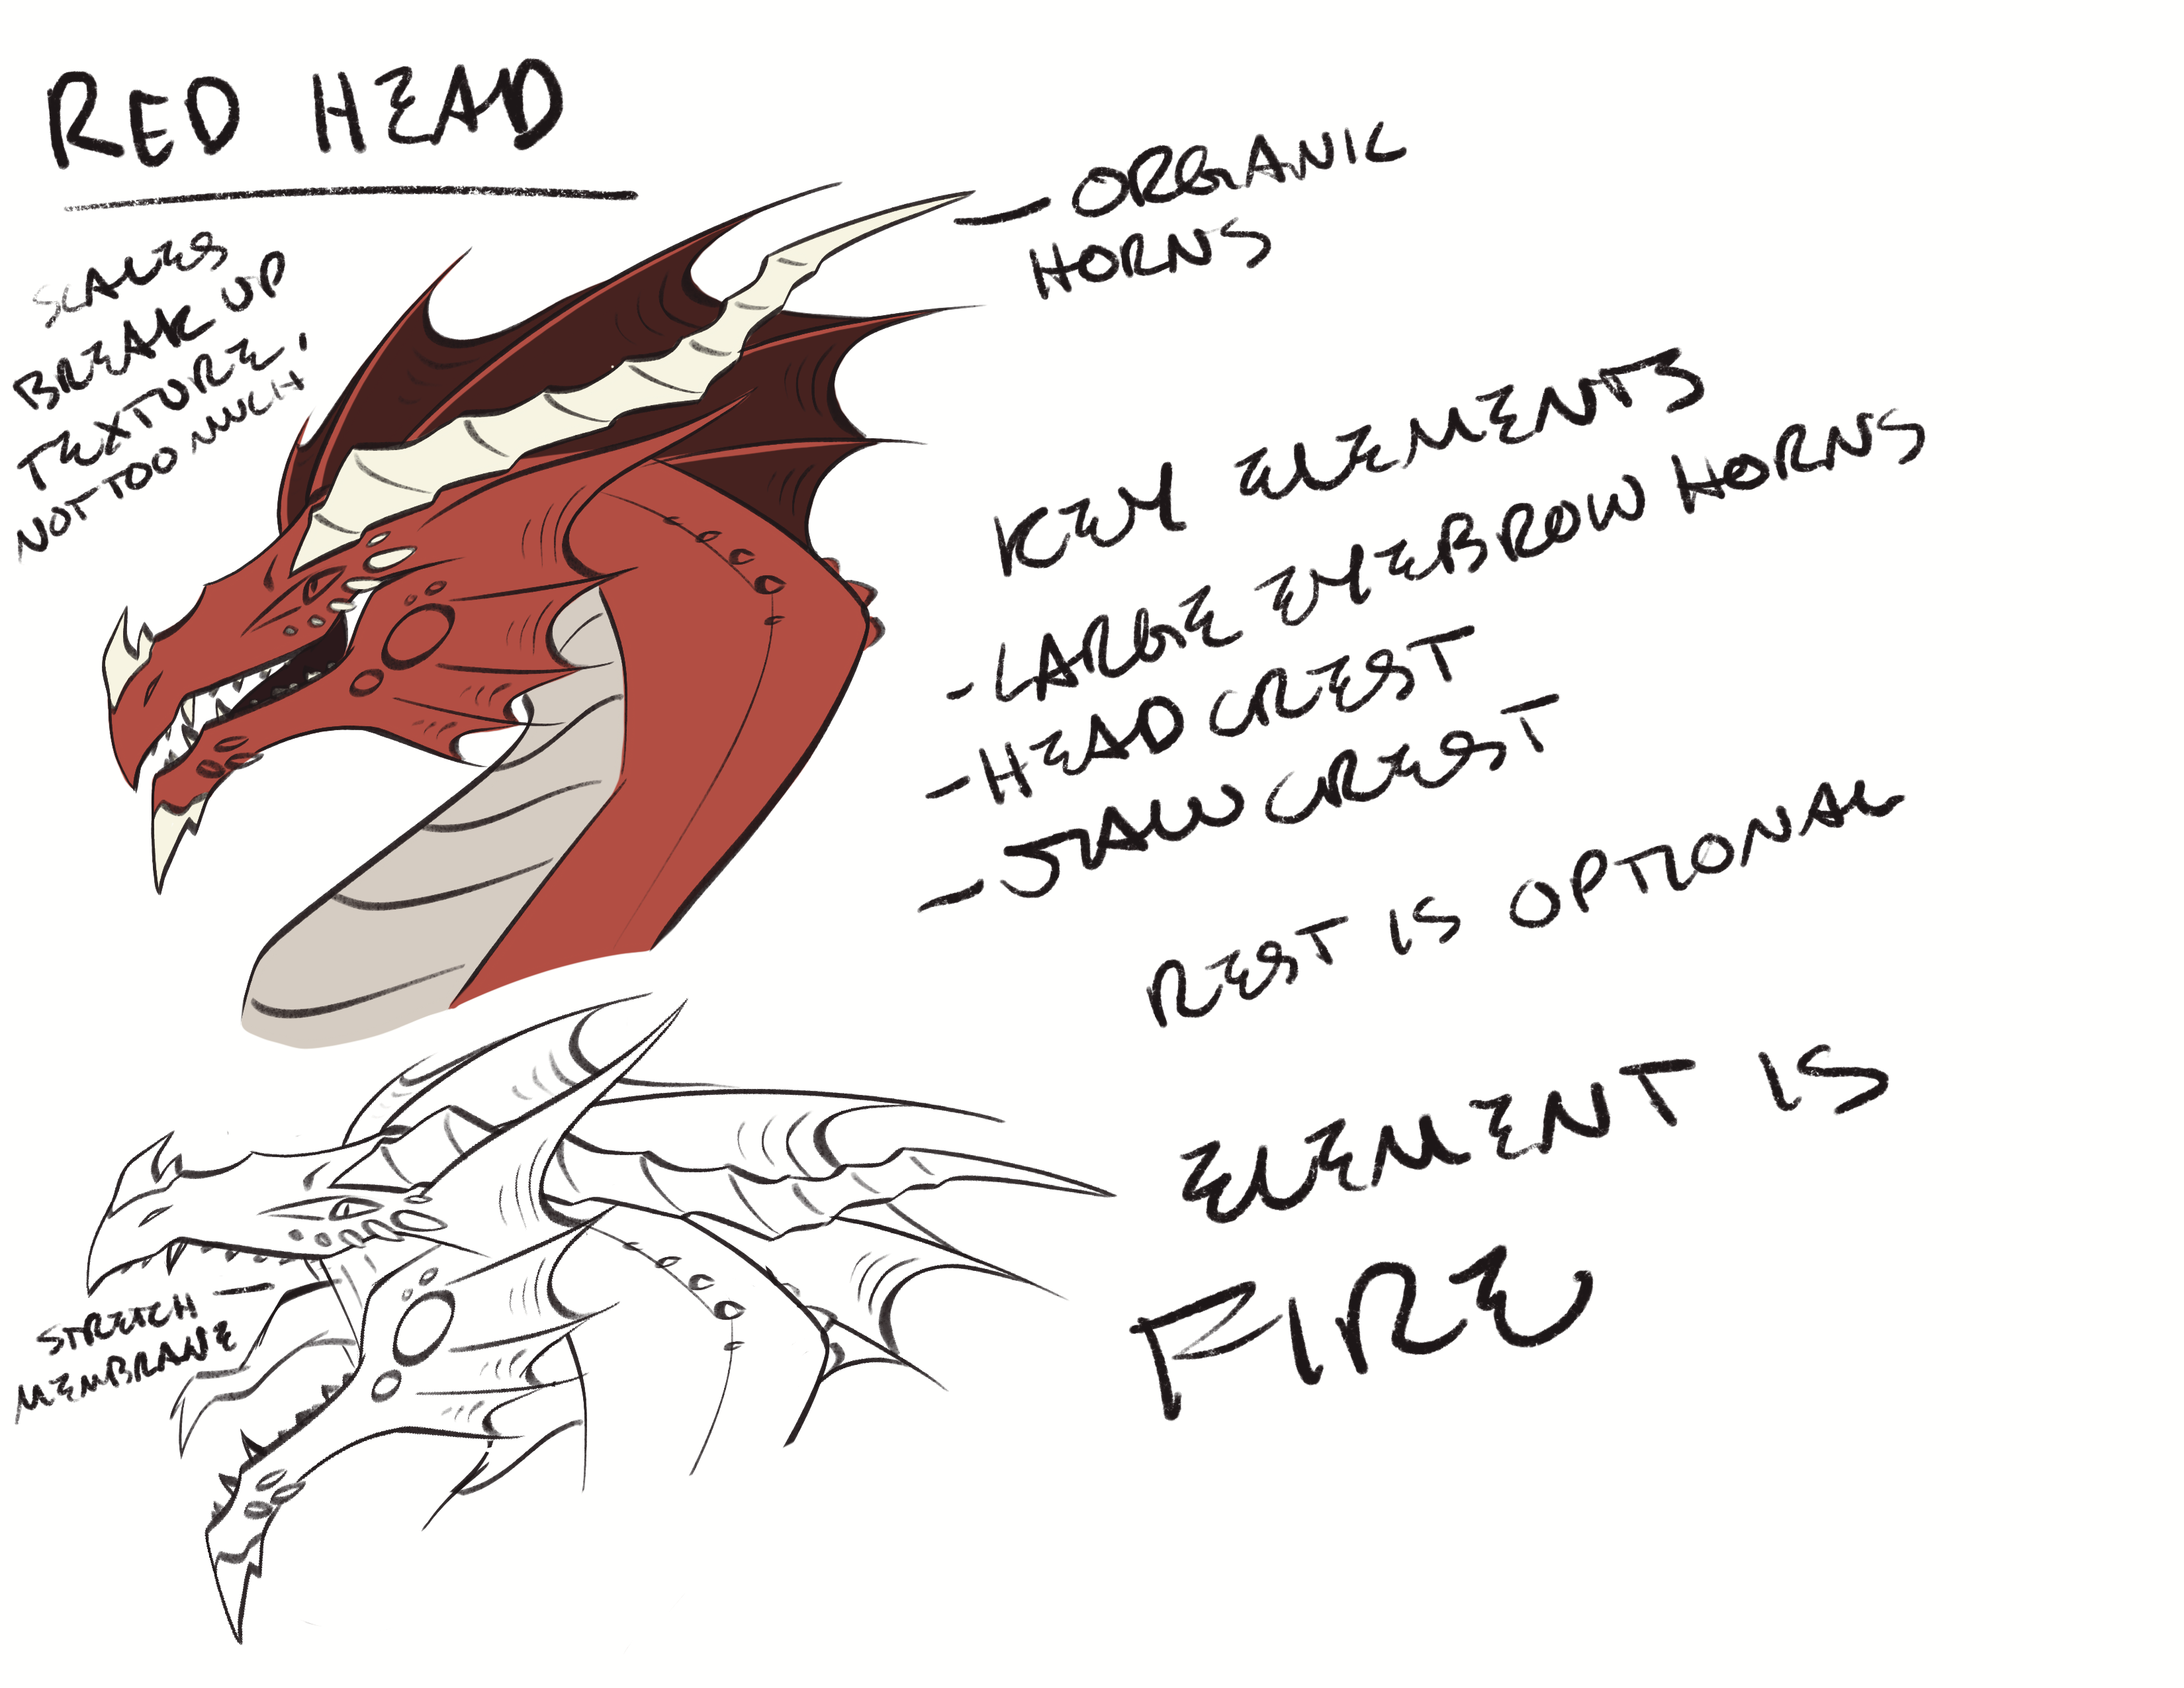 RED HEAD
SCALES
BREAK UP
TEXTURE,
NOT TOO MUCH
- ORGANIC
HORNS
KEY ELEMENTS
- LARGE EYEBROW HORNS
- HEAD CREST
- JAW CREST
REST IS OPTIONAL
ELEMENT IS
FIRE
STRETCH
MEMBRANE